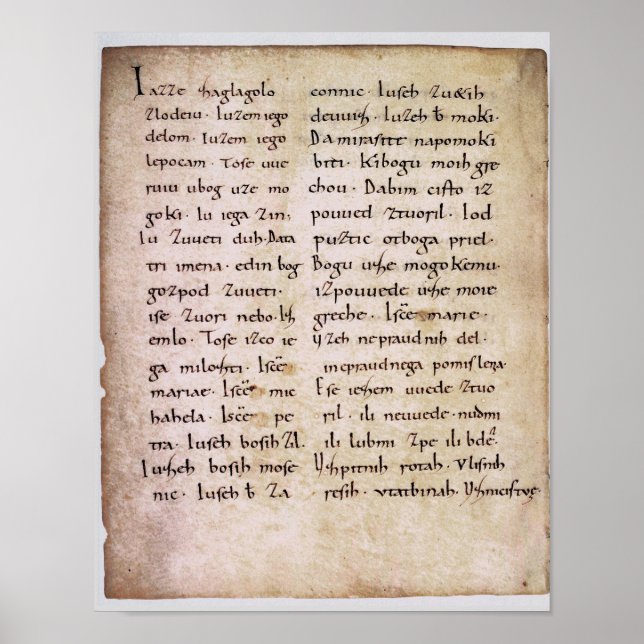 Iazze haglagolo
zlodeiu · Iuzem iego
delom · Iuzem iego
lepocam · Tose uue
ruiu ubog uze mo
goki · Iu iega zin;
Iu zuueti duh · Data
tri imena · edin bog
gozpod zuueti ·
ise zuori nebo · Izh
emlo · Tose izco ie
ga milozti · Isc̄e
mariae · Isc̄e mic
hahela · Isc̄e pe
tra · Iuseh bosih zil ·
Iuzeh bosih mose
nic · Iuseh ƀ za
connic · Iuseh zu&ih
deuuiz · Iuzeh ƀ moki ·
Da mirasite napomoki
biti · Kibogu moih gre
chou · Dabim cisto iz
pouued ztuoril · Iod
puztic otboga priel ·
Bogu uze mogokemu ·
izpouuede uze moie
greche · Isc̄e marie ·
Uzeh nepraudnih del ·
inepraudnega pomislena ·
Ese iezem uuede ztuo
ril · ili neuuede · nudmi
ili lubmi zpe ili bde ·
Uzpitnih rotah · Vlisnih
resih · vtatbinah · Uznicistue ·